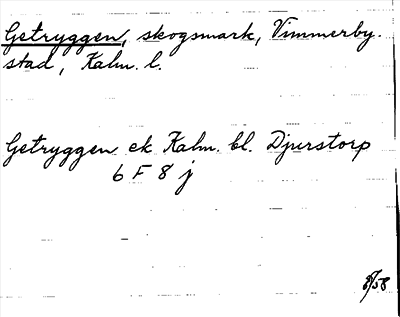 Getryggen, skogsmark, Vimmerby.
stad, Kalm. l.
Getryggen ek Kalm. bl. Djurstorp
6 F 8 j